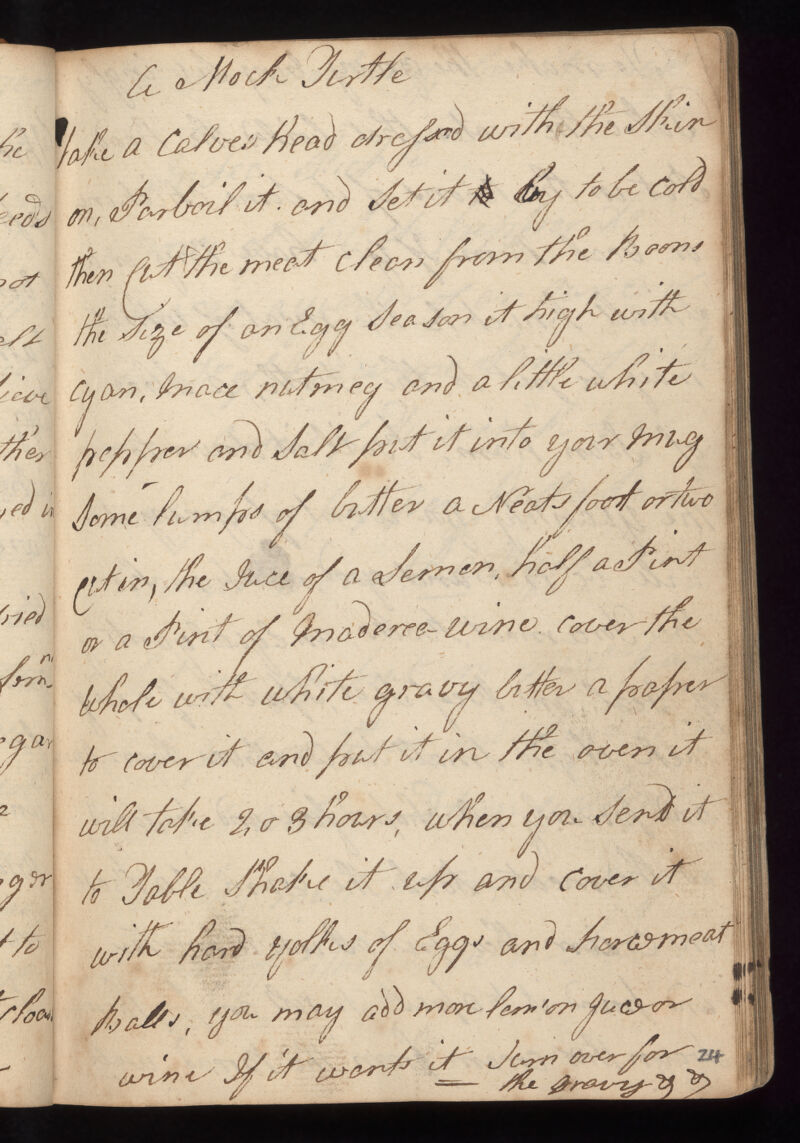 A Mock Turtle
take a Calves head dressed with the Skin
on, Parboil it. and set it by to be cold
then Cut the meat clean from the Boons
the Size of an Egg Season it high with
cyan, Mace nutmeg and a little white
pepper and Salt put it into your Mug
Some lumps of butter a Neats foot or two
Cut in, the Juce of a Lemon, half a Pint
or a Pint of Maderea wine cover the
whole with white gravy butter a paper
to cover it and put it in the oven it
will take 2 o 3 hours, when you Send it
to Table Shake it up and cover it
with hard yolks of Eggs and forcemeat
Balls, you may add more lemon Juce or
wine If it wants it Turn over for
the Gravy
24
he
eeds
not
elt
ieve
ther
yed in
ried
egar
ger
t to